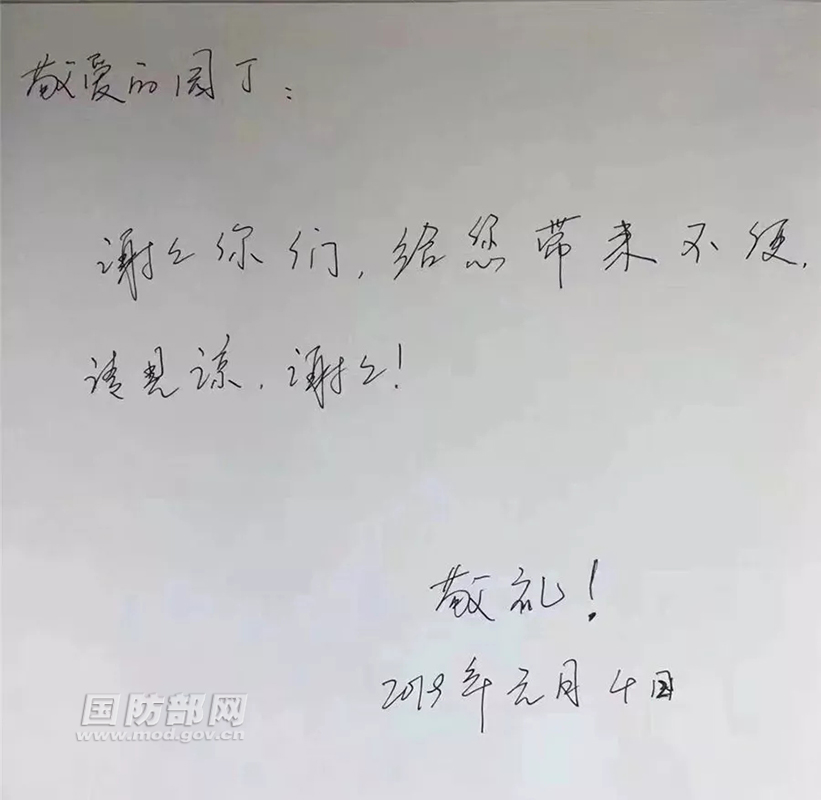 敬爱的园丁：
谢々你们，给您带来不便，
请見谅，谢々！
敬礼！
2019年元月4日
国防部网
www.mod.gov.cn